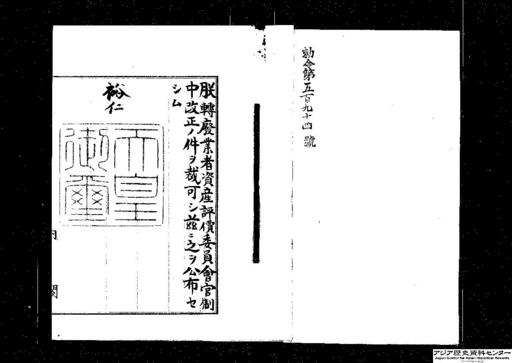 勅令第五百九十四號
朕轉廢業者資産評價委員會官制
中改正ノ件ヲ裁可シ茲ニ之ヲ公布セ
シム
裕仁
天皇
御璽
内閣
アジア歴史資料センター
Japan Center for Asian Historical Records